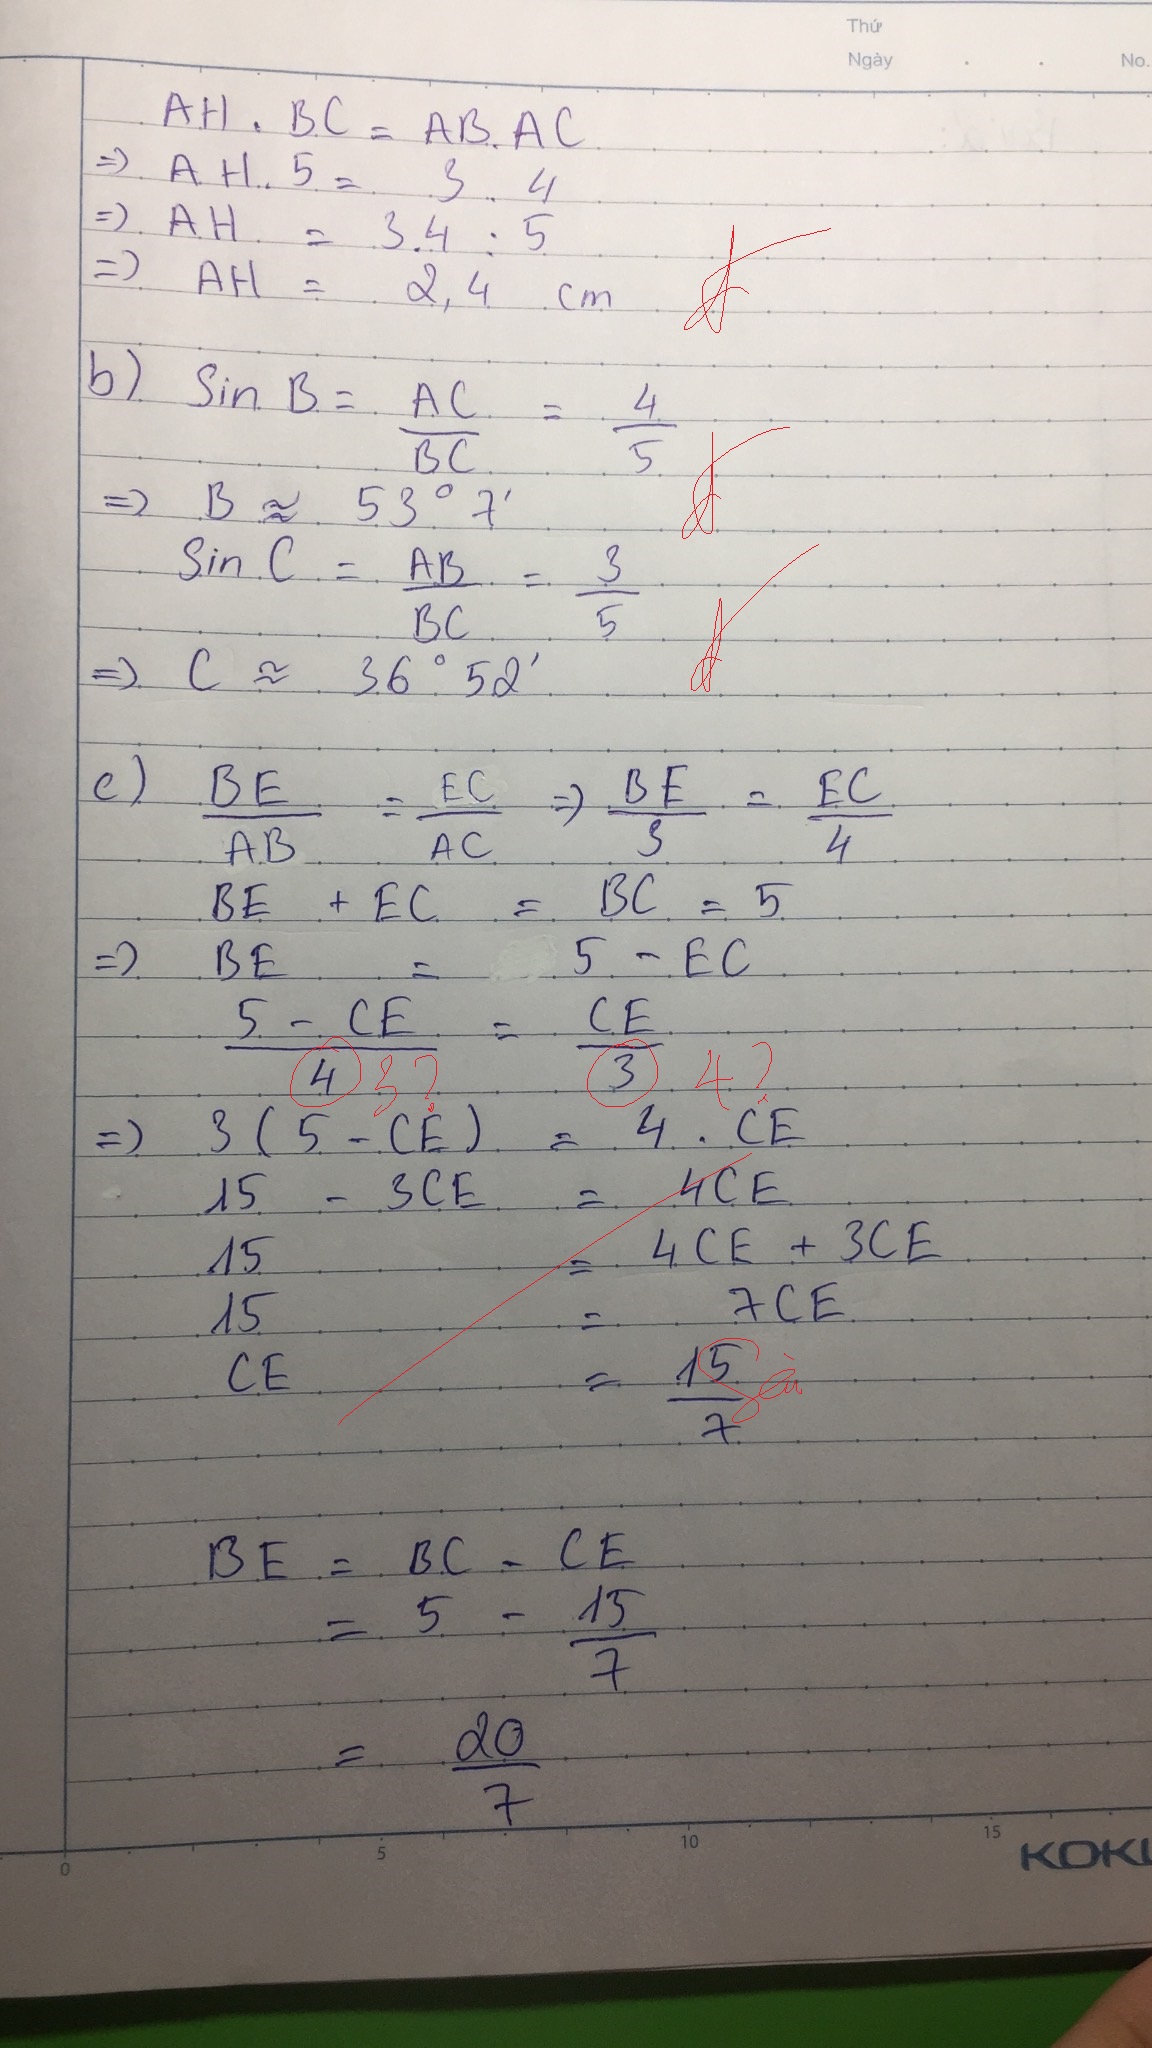 Thứ
Ngày . . No.
AH . BC = AB . AC
=> AH . 5 = 3 . 4
=> AH = 3.4 : 5
=> AH = 2,4 cm
b) Sin B = AC/BC = 4/5
=> B ≈ 53° 7'
Sin C = AB/BC = 3/5
=> C ≈ 36° 52'
c) BE/AB = EC/AC => BE/3 = EC/4
BE + EC = BC = 5
=> BE = 5 - EC
5 - CE/4 = CE/3
3? 4?
=> 3(5 - CE) = 4 . CE
15 - 3CE = 4CE
15 = 4CE + 3CE
15 = 7CE
CE = 15/7
BE = BC - CE
= 5 - 15/7
= 20/7
0 5 10 15
KOKU